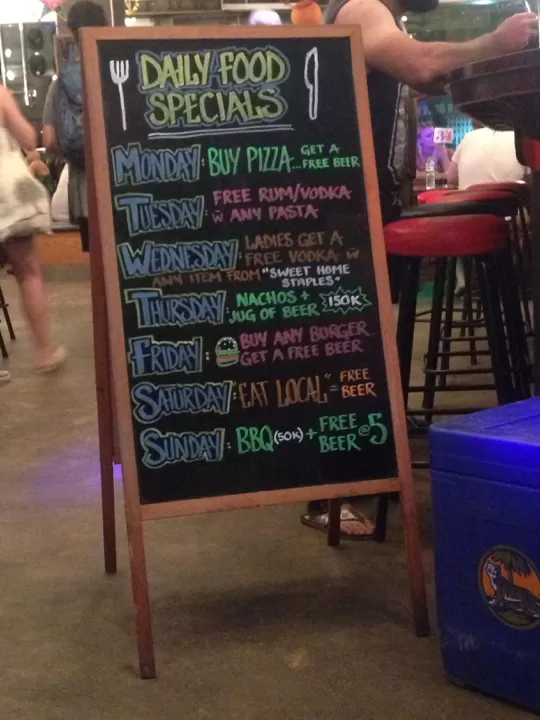 DAILY FOOD
SPECIALS
MONDAY: BUY PIZZA... GET A
FREE BEER
TUESDAY: FREE RUM/VODKA
W̄ ANY PASTA
WEDNESDAY: LADIES GET A
FREE VODKA W̄
ANY ITEM FROM "SWEET HOME
STAPLES"
THURSDAY: NACHOS +
JUG OF BEER 150K
FRIDAY: BUY ANY BURGER
GET A FREE BEER
SATURDAY: "EAT LOCAL" = FREE
BEER
SUNDAY: BBQ (50K) + FREE
BEER @ 5